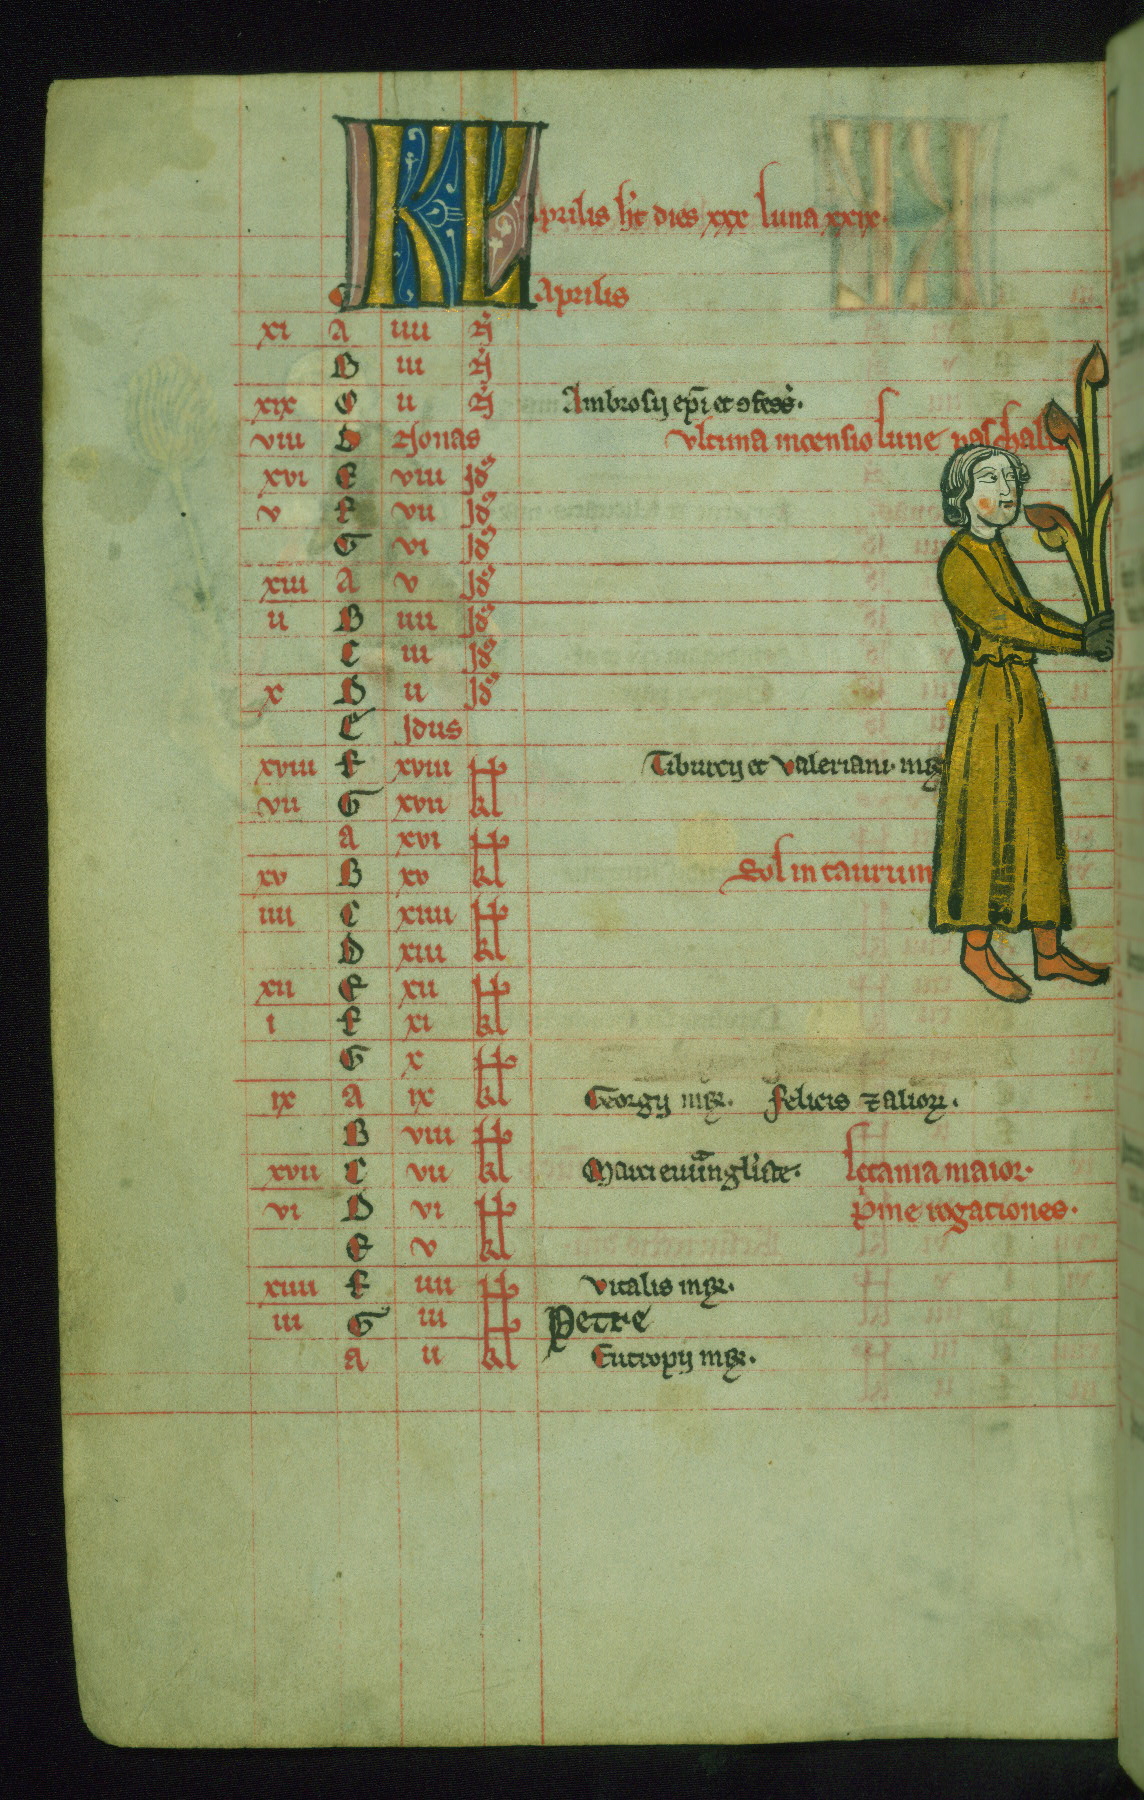 KL Aprilis ht dies xxx luna xxix.
G Aprilis
xi A iiii N
B iii N
xix C ii N Ambrosij epi et ɔfess.
viii D Nonas Ultima incensio lune paschal
xvi E viii Jds
v F vii Jds
G vi Jds
xiii A v Jds
ii B iiii Jds
C iii Jds
x D ii Jds
E Jdus
xviii F xviii kl Tiburcij et Valeriani. mr
vii G xvii kl
a xvi kl
xv B xv kl Sol in taurum
iiii C xiiii kl
D xiii kl
xii E xii kl
i F xi kl
G x kl
ix A ix kl Georgij mr. Felicis ⁊ alior.
B viii kl
xvii C vii kl Marci euuangliste. Letania maior.
vi D vi kl pme rogationes.
E v kl
xiiii F iiii kl Vitalis mr.
iii G iii kl Petre
a ii kl Eutropij mr.